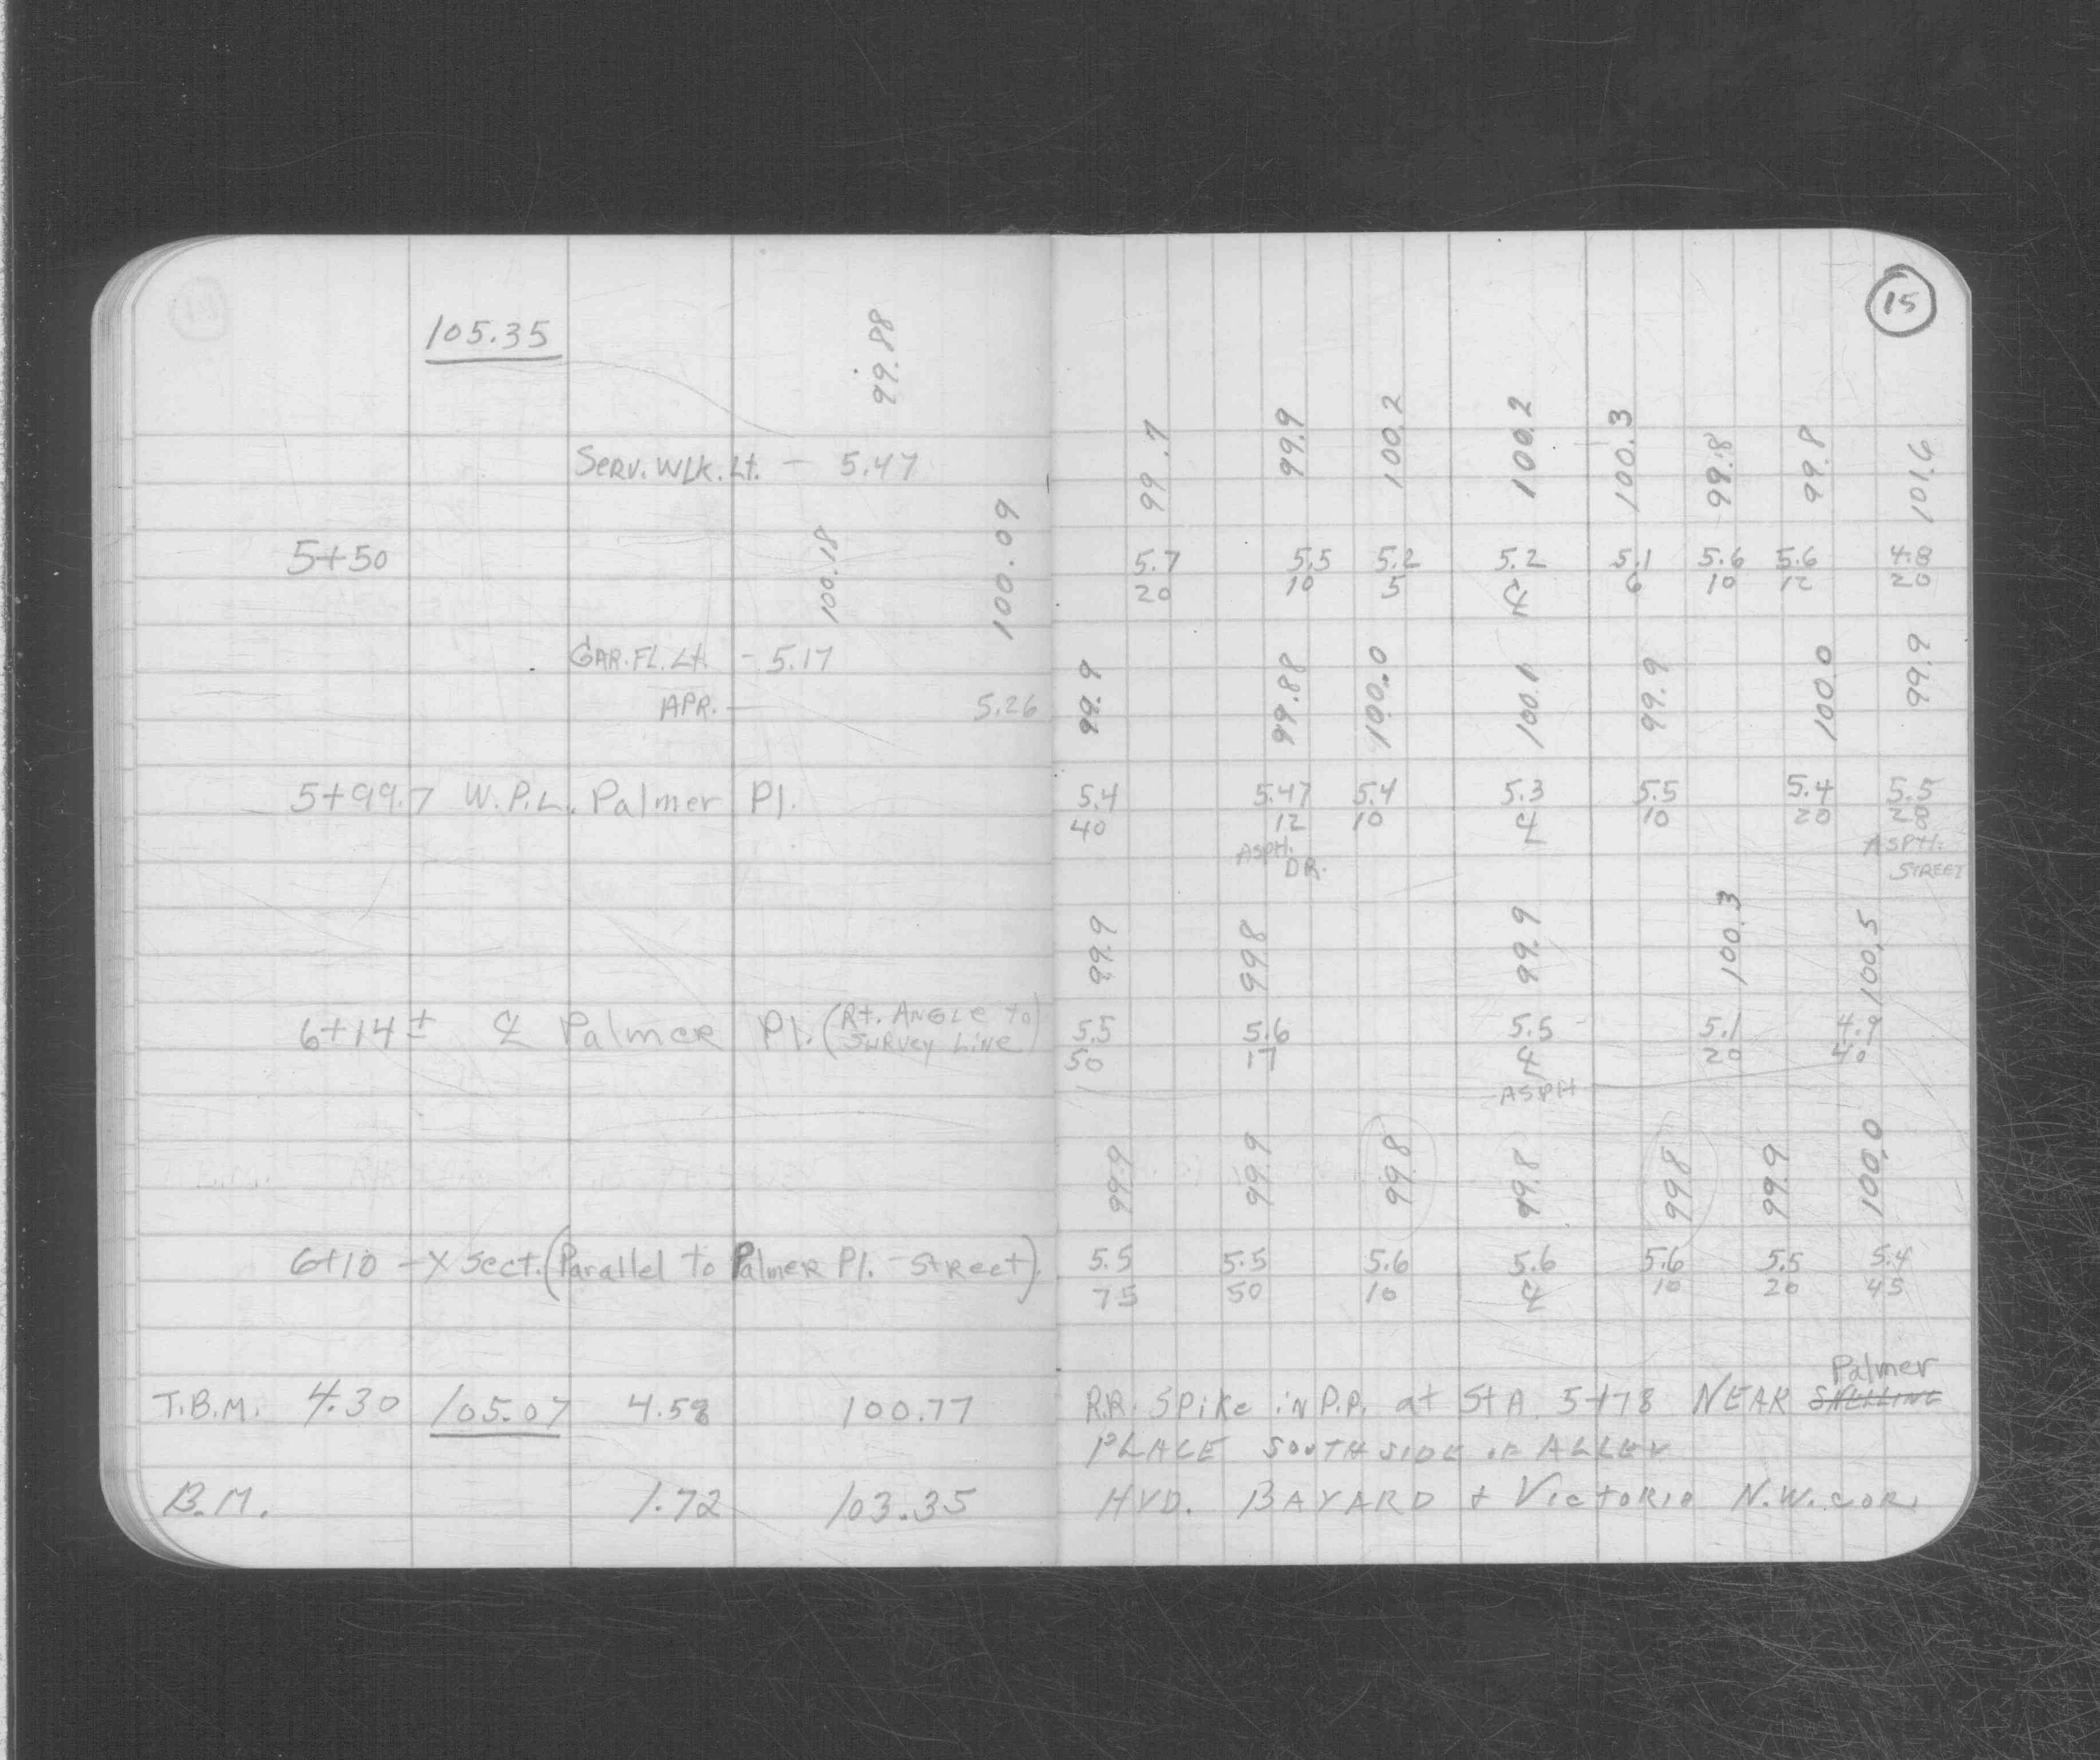 15
105.35
99.88
Serv. Wlk. Lt. - 5.47
99.7 99.9 100.2 100.2 100.3 99.8 99.8 101.6
5+50
5.7 5.5 5.2 5.2 5.1 5.6 5.6 4.8
20 10 5 ℄ 6 10 12 20
100.18 100.09
Gar. Fl. Lt. - 5.17
APR. - 5.26
99.9 99.88 100.0 100.1 99.9 100.0 99.9
5+99.7 W.P.L. Palmer Pl. 5.4 5.47 5.4 5.3 5.5 5.4 5.5
40 12 10 ℄ 10 20 28
ASPH. DR. ASPH. STREET
99.9 99.8 99.9 100.3 100.5
6+14± ℄ Palmer Pl. (Rt. Angle to Survey Line) 5.5 5.6 5.5 5.1 4.9
50 17 ℄ 20 40
ASPH
99.9 99.9 99.8 99.8 99.8 99.9 100.0
6+10 - X Sect. (Parallel to Palmer Pl. - Street) 5.5 5.5 5.6 5.6 5.6 5.5 5.4
75 50 10 ℄ 10 20 45
Palmer
T.B.M. 4.30 105.07 4.58 100.77 R.R. Spike in P.P. at StA. 5+78 NEAR SNELLING
PLACE SOUTH SIDE OF ALLEY
B.M. 1.72 103.35 HYD. BAYARD + Victoria N.W. COR.